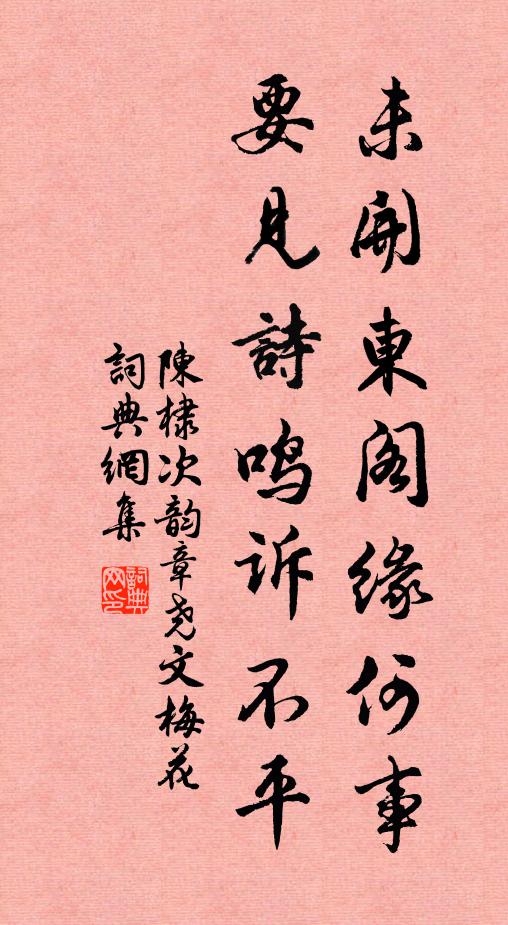 未開東阁緣何事
要見詩鸣诉不平
陳棣次韵章尧文梅花
詞典網集
詞典网印